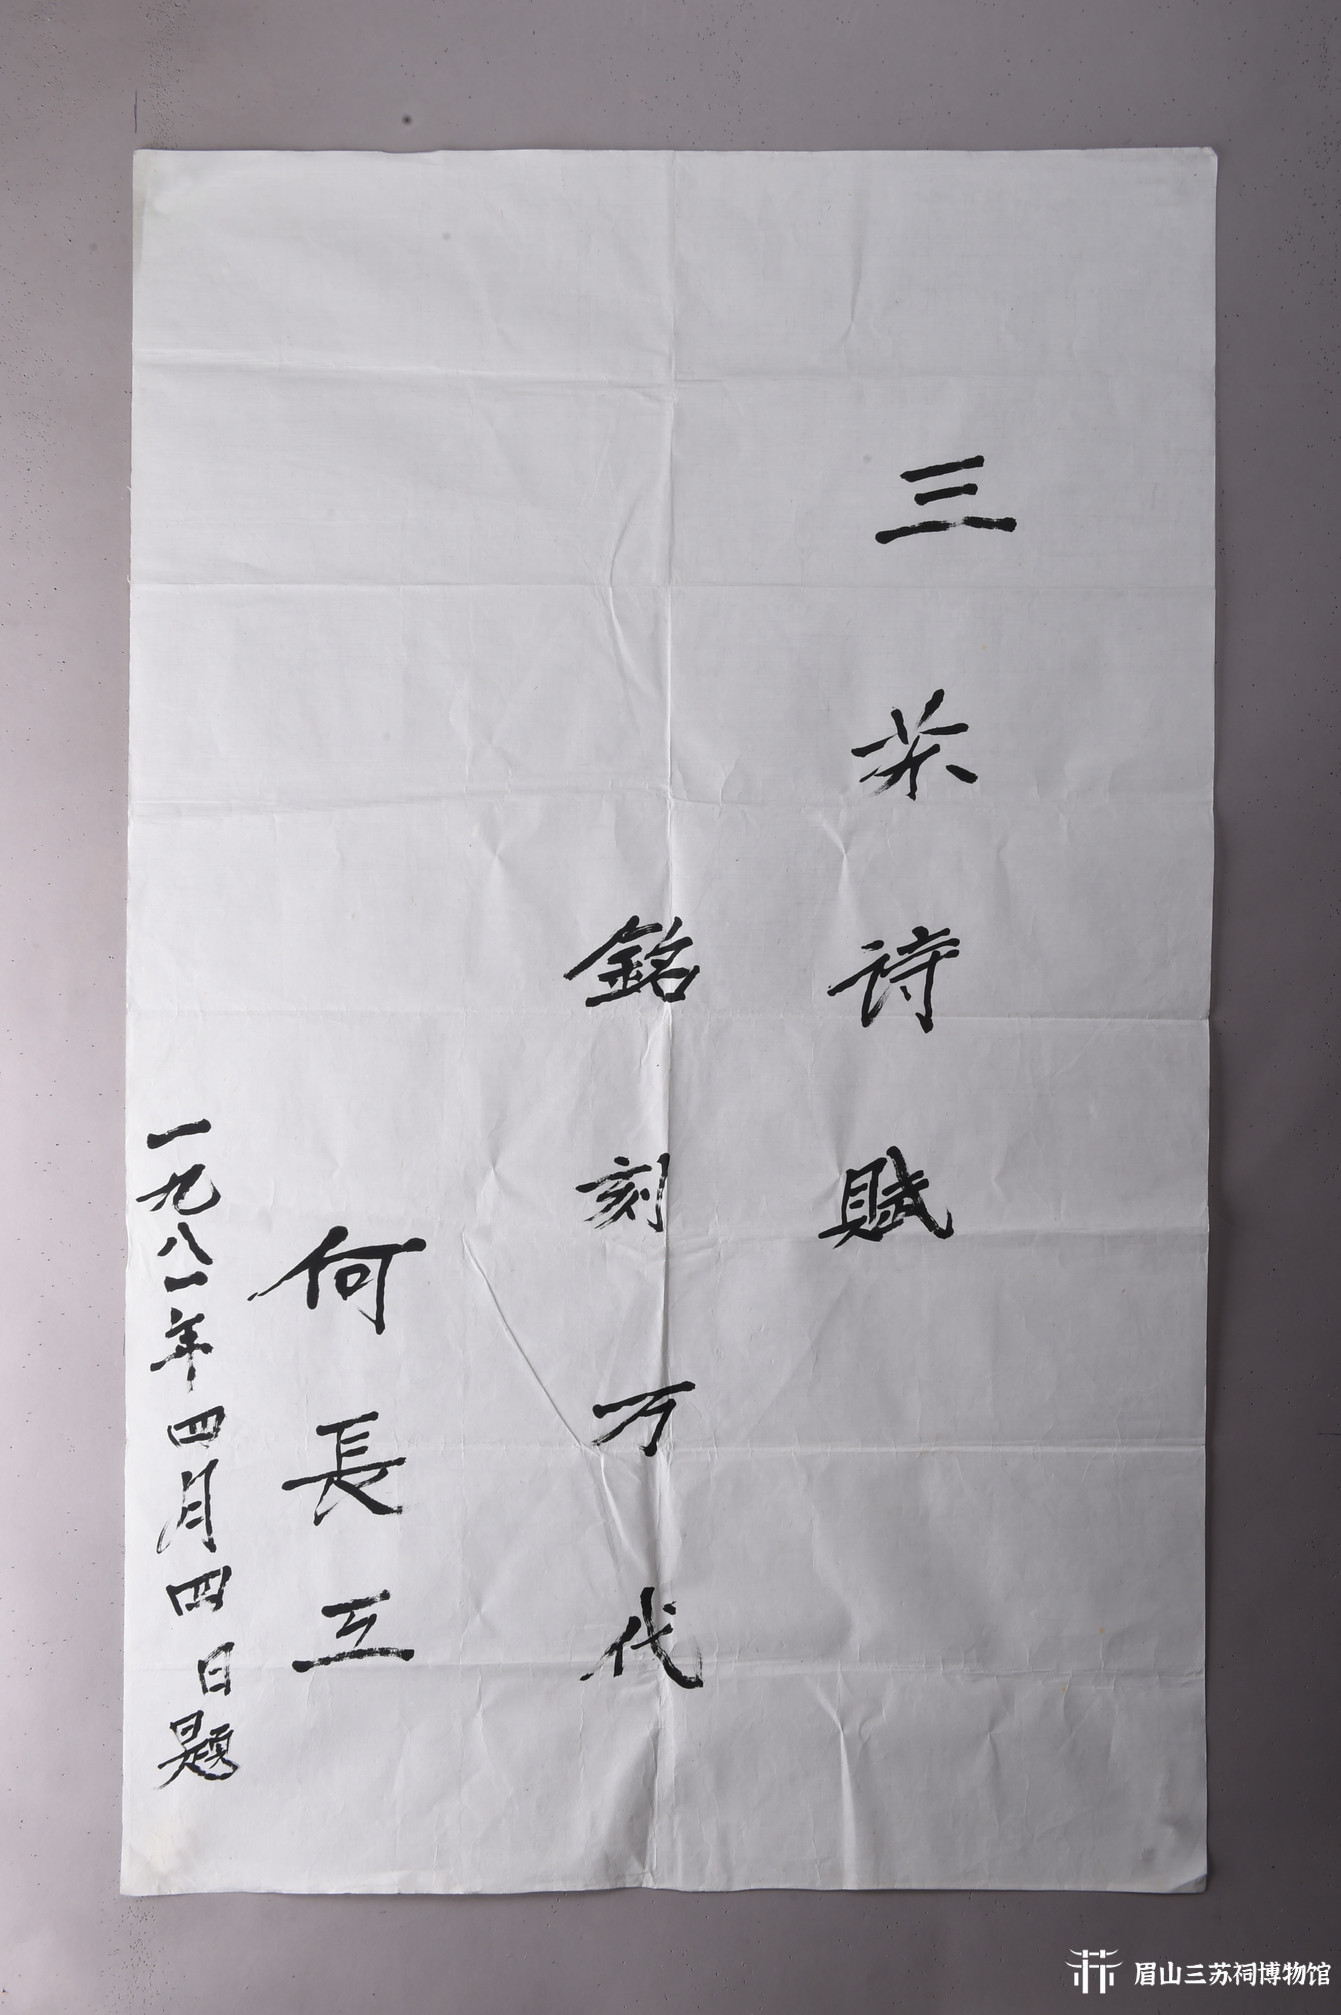 三苏诗賦
銘刻万代
何長工
一九八一年四月四日题
眉山三苏祠博物馆